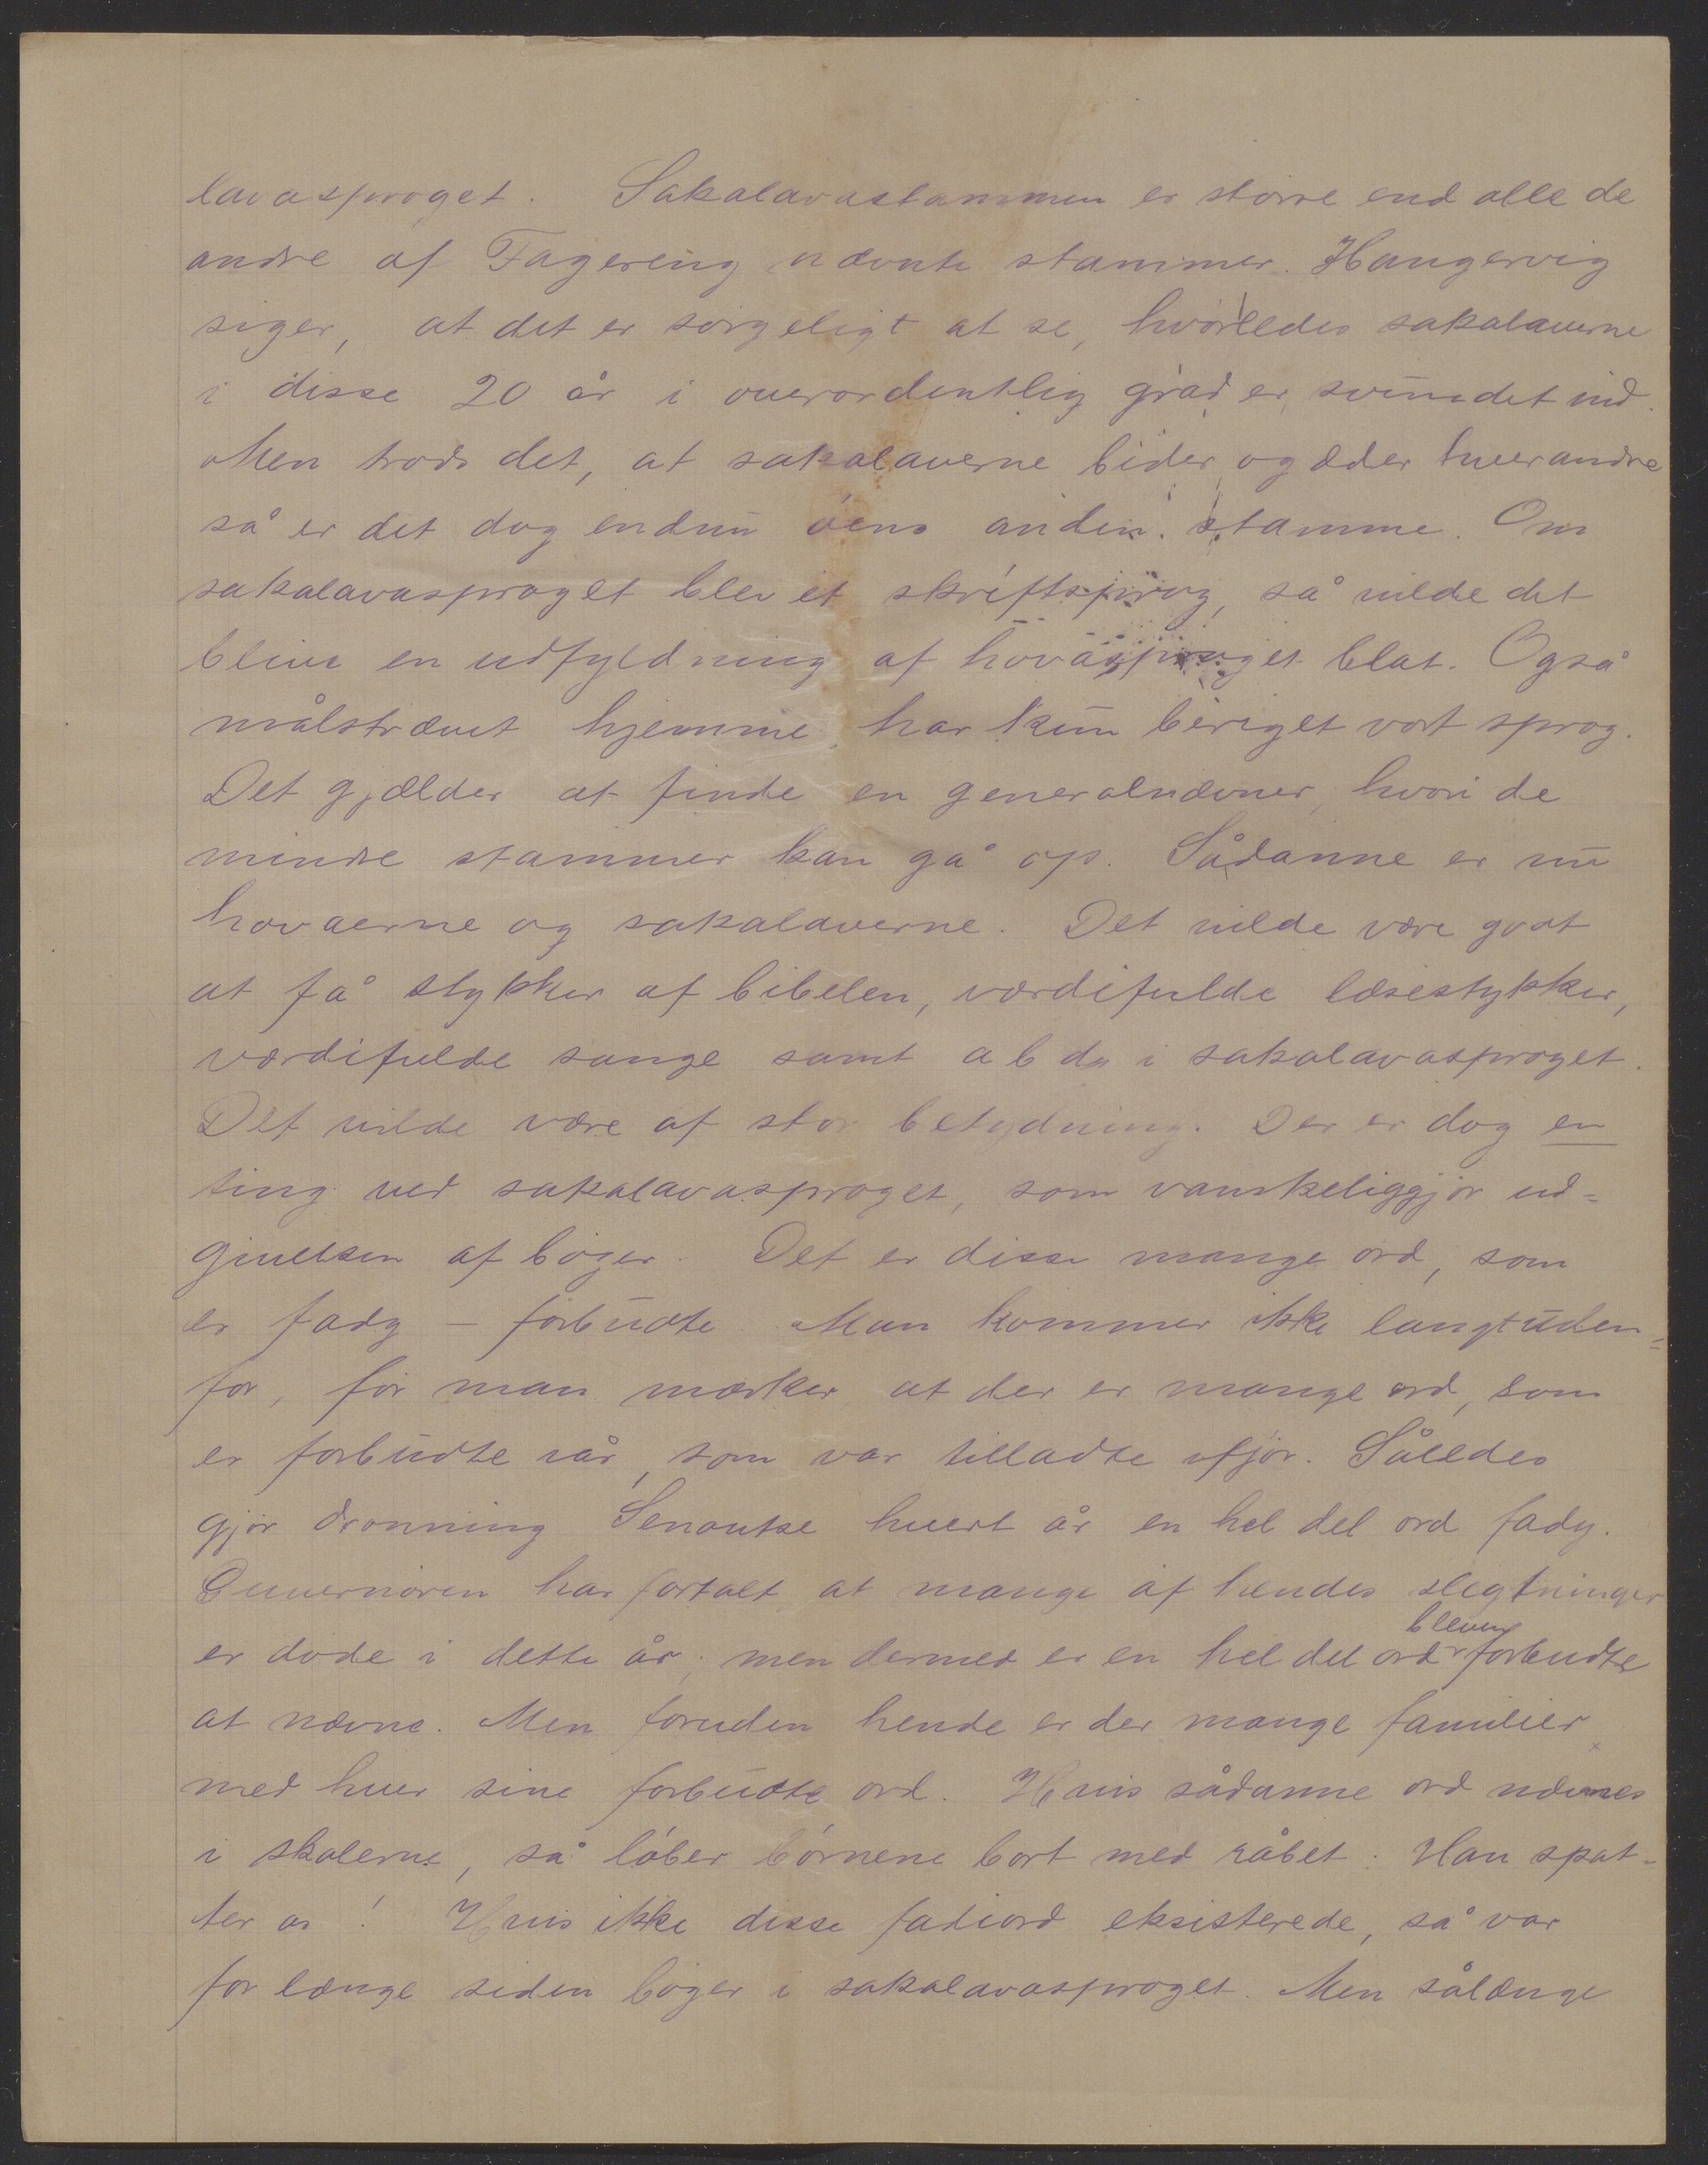 lavasproget. Sakalavastammen er større end alle de
andre af Fagereng nævnte stammer. Haugervig
siger, at det er sørgeligt at se, hvorledes sakalaverne
i disse 20 år i overordentlig grad er svundet ind.
Men trods det, at sakalaverne bider og æder hverandre
så er det dog endnu øens anden stamme. Om
sakalavasproget blev et skriftsprog, så vilde det
blive en udfyldning af hovasproget blot. Også
målstrævet hjemme har kun beriget vort sprog.
Det gjælder at finde en generalnævner, hvori de
mindre stammer kan gå op. Sådanne er nu
hovaerne og sakalaverne. Det vilde være godt
at få stykker af bibelen, værdifulde læsestykker,
værdifulde sange samt a b d i sakalavasproget.
Det vilde være af stor betydning. Der er dog en
ting ved sakalavasproget, som vanskeliggjør ud=
givelsen af bøger. Det er disse mange ord, som
er fady – forbudte Man kommer ikke langt uden=
for, før man mærker, at der er mange ord, som
er forbudte iår, som var tilladte ifjor. Således
gjør dronning Senoutse hvert år en hel del ord fady.
Guvernøren har fortalt, at mange af hendes slegtninger
er døde i dette år; men dermed er en hel del ord bleven forbudte
at nævne. Men foruden hende er der mange familier
med hver sine forbudte ord. Hvis sådanne ord nævnes
i skolerne, så løber børnene bort med råbet: Han spot-
ter os! Hvis ikke disse fadiord eksisterede, så var
for længe siden bøger i sakalavasproget. Men sålænge